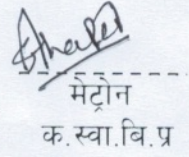 मेट्रोन
क.स्वा.बि.प्र